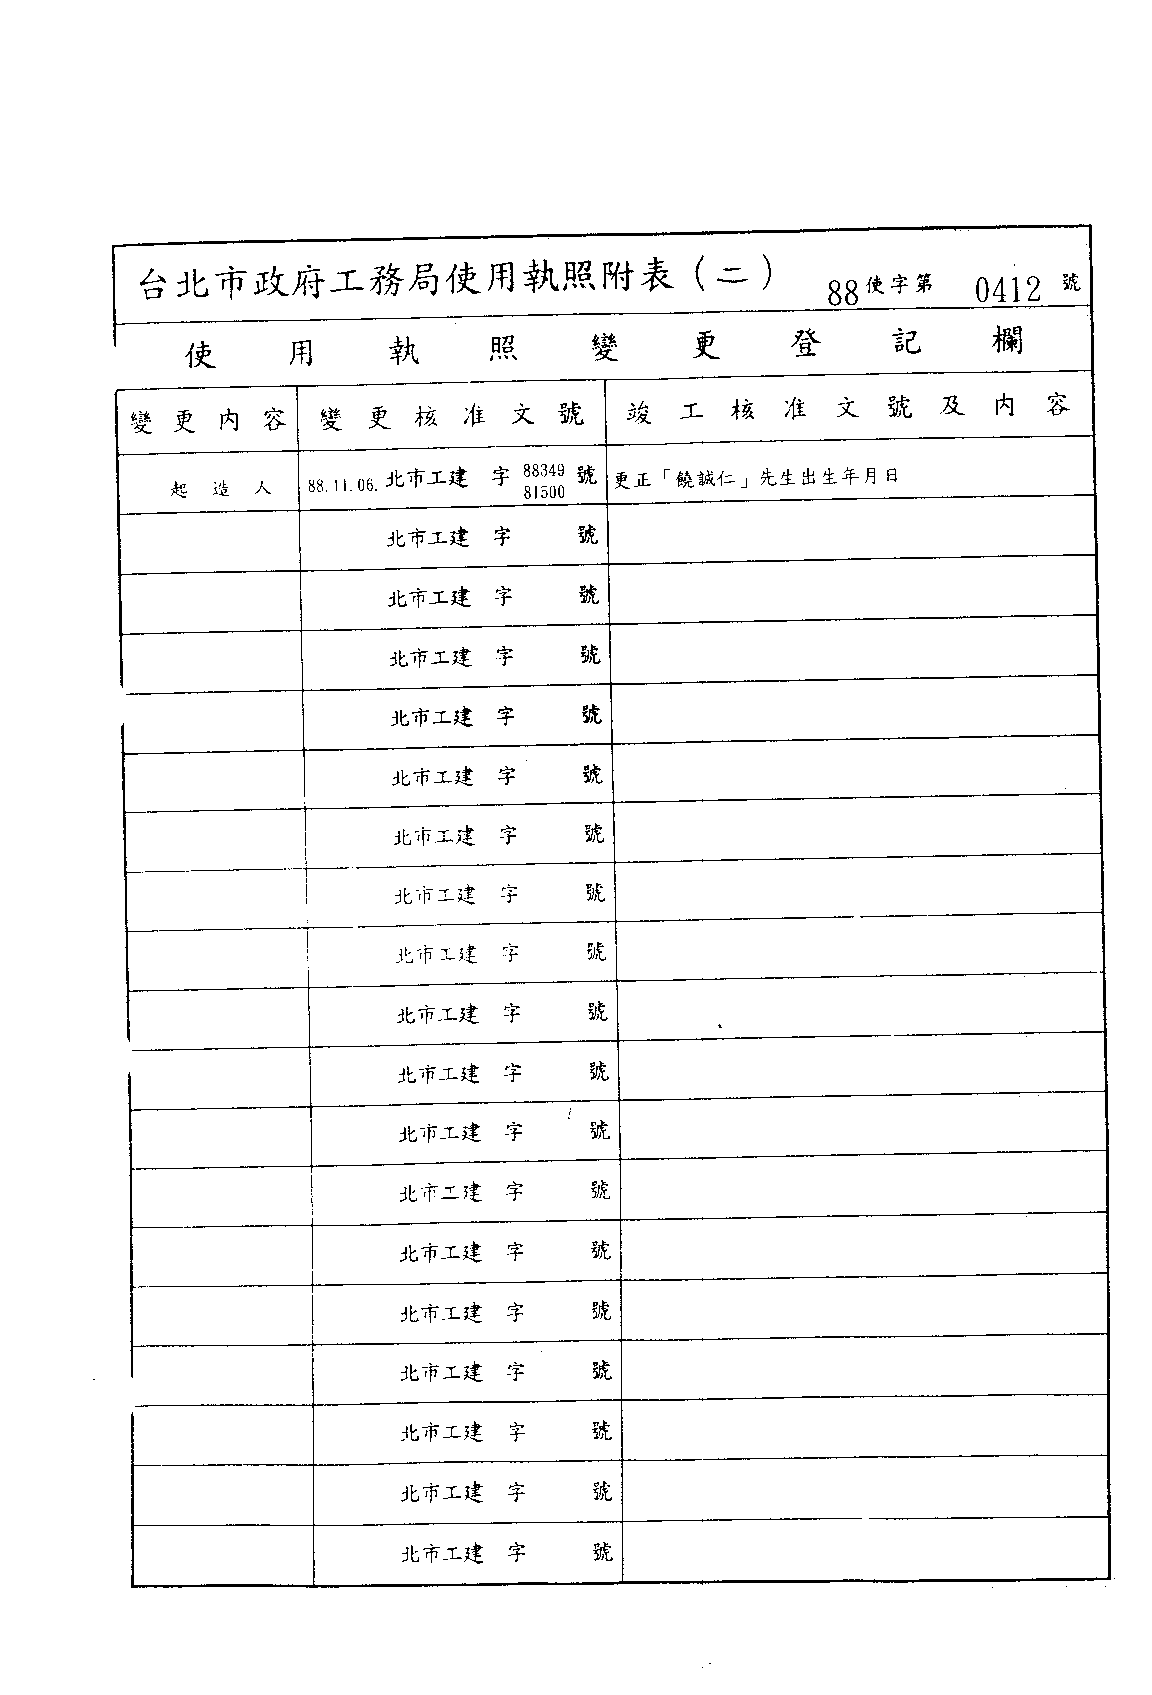 台北市政府工務局使用執照附表(二) 88使字第 0412 號
使用執照變更登記欄
變更內容 變更核准文號 竣工核准文號及內容
起造人 88.11.06. 北市工建 字 88349 81500 號 更正「饒誠仁」先生出生年月日
北市工建 字 號
北市工建 字 號
北市工建 字 號
北市工建 字 號
北市工建 字 號
北市工建 字 號
北市工建 字 號
北市工建 字 號
北市工建 字 號
北市工建 字 號
北市工建 字 號
北市工建 字 號
北市工建 字 號
北市工建 字 號
北市工建 字 號
北市工建 字 號
北市工建 字 號
北市工建 字 號